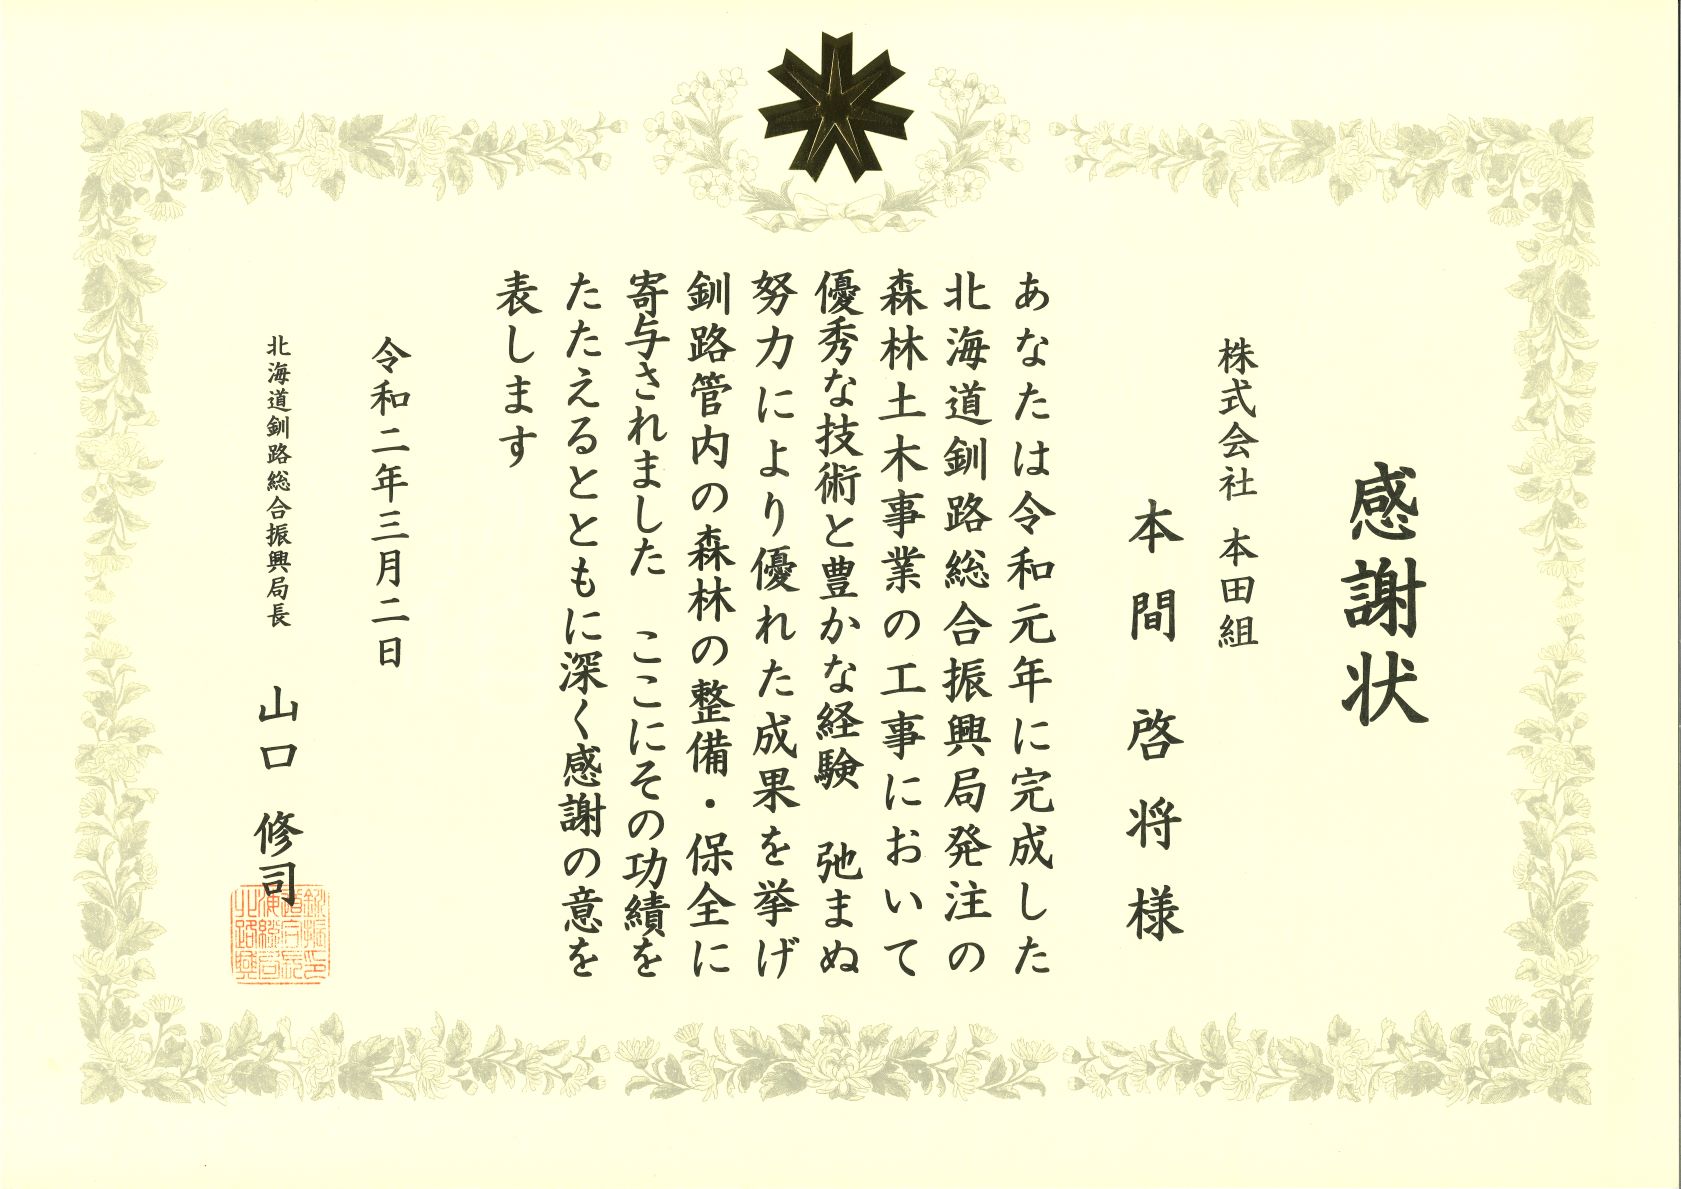 感謝状
株式会社 本田組
本間 啓将 様
あなたは令和元年に完成した
北海道釧路総合振興局発注の
森林土木事業の工事において
優秀な技術と豊かな経験 弛まぬ
努力により優れた成果を挙げ
釧路管内の森林の整備・保全に
寄与されました ここにその功績を
たたえるとともに深く感謝の意を
表します
令和二年三月二日
北海道釧路総合振興局長 山口 修司